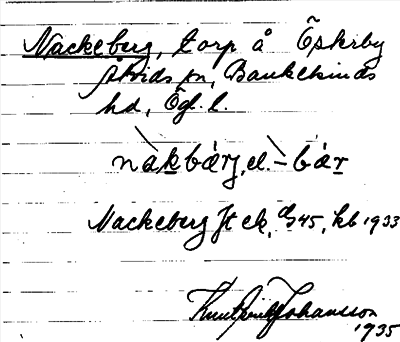 Nackeberg, torp å Öskerby
Åtvids sn, Bankekinds
hd, Ögl. l.
nàkbær̀j, el. – bær̀
Nackeberg Jt ek, G 45, kb 1933
Knut Johansson
1935